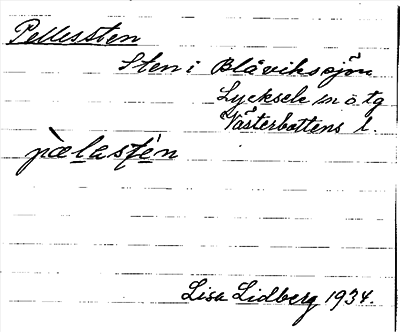 Pellessten
Sten i Blåvikssjön
Lycksele sn o. tg
Västerbottens l.
pæ̀lastén
Lisa Lidberg 1934.